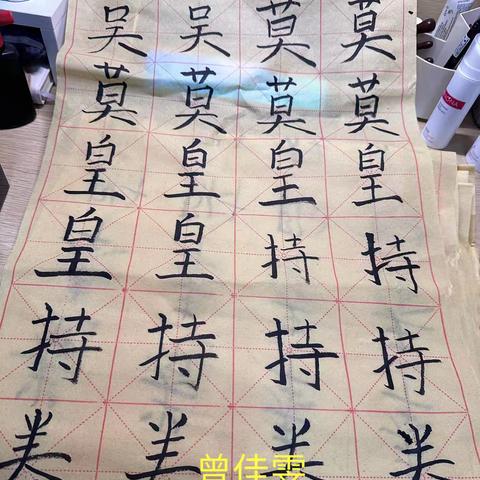 吴吴莫莫
莫莫莫莫
皇皇皇皇
皇皇持持
持持持持
曾佳雯